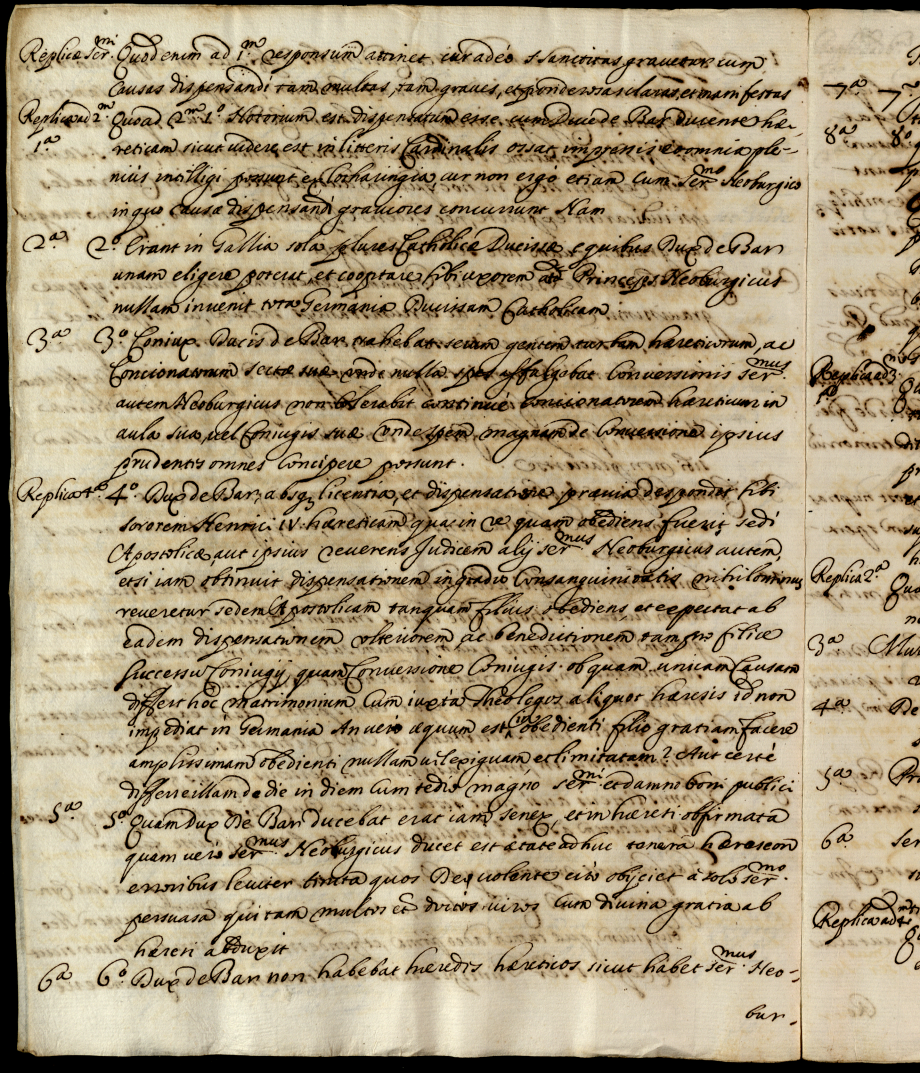 Replicæ Ser.mi Quod enim ad 1.m responsum attinet cur adeò Sanctitas gravetur cum
causas dispensandi tam multas, tam graves, et ponderosas claras, et manifestas
Replica ad 2.m Quoad 2.m 1.o Notorium est dispensatum esse cum Duce de Bar ducente hæ-
1.a reticam sicut videre est in litteris Cardinalis ossat impressis et omnia ple-
nius intilligi possunt ex Lotharingia cur non ergo etiam cum Ser.mo Neoburgico
in quo causæ dispensandi graviores concurrunt Nam
2.a 2.o Erant in Gallia sola plures Catholicæ Ducissæ e quibus Dux de Bar
unam eligere poterat, et cooptare sibi uxorem at Princeps Neoburgicus
nullam invenit tota Germania Ducissam Catholicam
3.a 3.o Coniux Ducis de Bar trahebat secum gentem turbam hæreticorum, ac
Concionatorum sectæ suæ unde nulla spes affulgebat Conversionis Ser.mus
autem Neoburgicus non tolerabit continué concionatorem hæreticum in
aula sua, vel Coniugis suæ unde spem magnam de Conversione ipsius
prudentes omnes concipere possunt.
Replica 4.o 4.o Dux de Bar absq. licentia, et dispensatione prævia despondet sibi
sororem Henrici IV. hæreticam qua in re quam obediens fuerit sedi
Apostolicæ, aut ipsius reverens Judicem alij Ser.mus Neoburgicus autem,
etsi iam obtinuit dispensationem in gradu Consanguinitatis, nihilominus
reveretur sedem Apostolicam tanquam filius obediens et expectat ab
eadem dispensationem ulteriorem, ac benedictionem tam pro filice
successu Coniugij, quam Conversione Coniugis ob quam unicam Causam
differt hoc matrimonium Cum iuxta Theologos aliquot hæresis id non
impediat in Germania An vero æquum est in obedienti filio gratiam facere
amplissimam obedienti nullam vel exiguam et limitatam? Aut certé
differre illam de die in diem Cum tedio magno Ser.mi et damno boni publici
5.a 5.o Quam Dux De Bar ducebat erat iam senex, et in hæresi obfirmata
quam vero Ser.mus Neoburgicus ducet est ætate adhuc tenera hæreseon
erroribus leviter tincta quos Deo volente cito obijciet à solo Ser.mo
persuasa qui tam multos et doctos viros cum divina gratia ab
hæresi abduxit
6.a 6.o Dux de Bar non habebat hæredes hæreticos sicut habet Ser.mus Neo-
bur-
7.a
8.a 8.o
Replica ad 3.m
Replica 2.a
3.a
4.a De
5.a
6.a Ser
Replica ad 4